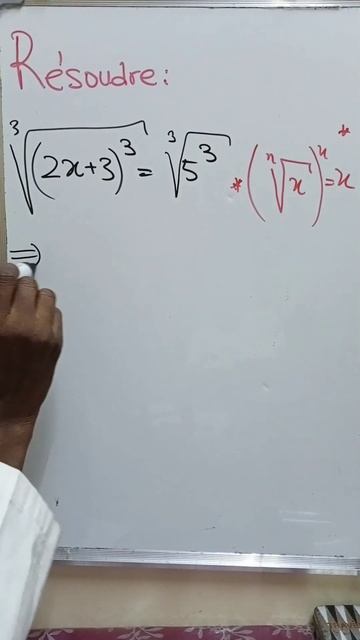 Résoudre:
∛(2x+3)³ = ∛5³ * (ⁿ√x)ⁿ = x *
⇒